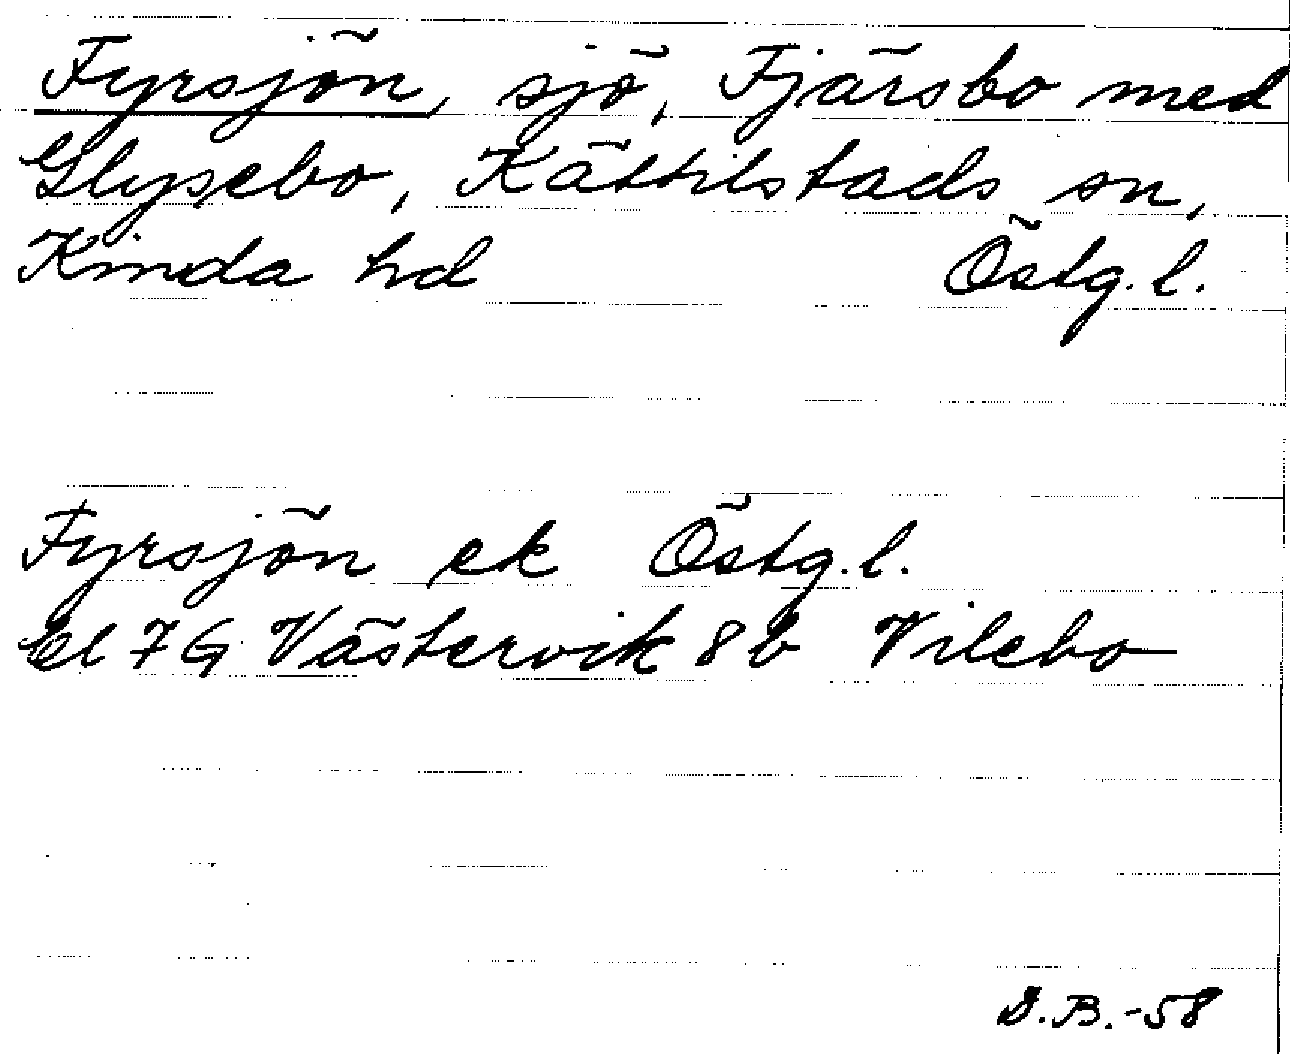 Fyrsjön, sjö, Fjärsbo med
Glysebo, Kättilstads sn,
Kinda hd Östg.l.
Fyrsjön ek Östg.l.
bl 7G Västervik 8b Vilebo
D.B.-58